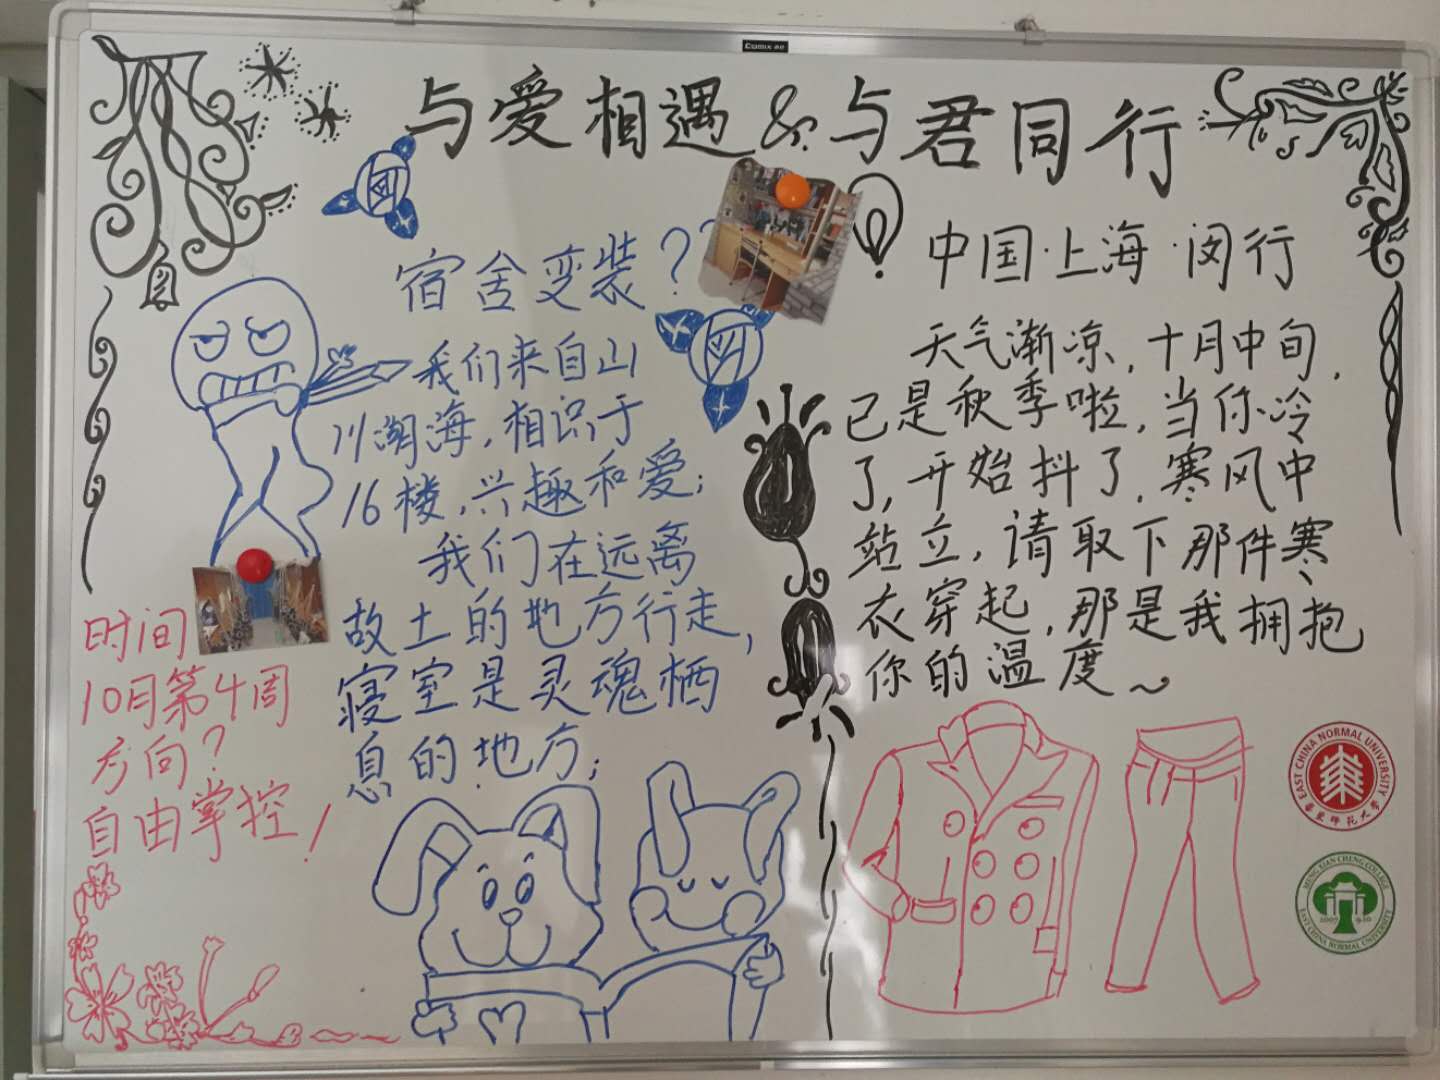 Comix 齐心
与爱相遇 & 与君同行
宿舍变装？？
我们来自山
川湖海，相识于
16楼，兴趣和爱；
我们在远离
故土的地方行走，
寝室是灵魂栖
息的地方；
时间
10月第4周
方向？
自由掌控！
中国·上海·闵行
天气渐凉，十月中旬，
已是秋季啦，当你冷
了，开始抖了，寒风中
站立，请取下那件寒
衣穿起，那是我拥抱
你的温度～
EAST CHINA NORMAL UNIVERSITY
华东师范大学
MENG XIAN CHENG COLLEGE
EAST CHINA NORMAL UNIVERSITY
2007